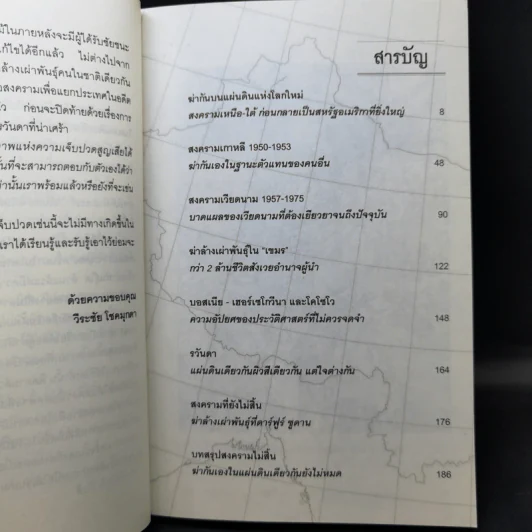 ม้ในภายหลังจะมีผู้ได้รับชัยชนะ
ก้ไขได้อีกแล้ว ไม่ต่างไปจาก
ล้างเผ่าพันธุ์คนในชาติเดียวกัน
อสงครามเพื่อแยกประเทศในอดีต
ว ก่อนจะปิดท้ายด้วยเรื่องการ
รวันดาที่น่าเศร้า
าพแห่งความเจ็บปวดสูญเสียได้
นที่จะสามารถตอบกับตัวเองได้ว่า
ท่านั้นเราพร้อมแล้วหรือยังที่จะเช่น
จ็บปวดเช่นนี้จะไม่มีทางเกิดขึ้นใน
เราได้เรียนรู้และรับรู้เอาไว้ย่อมจะ
ด้วยความขอบคุณ
วีระชัย โชคมุกดา
สารบัญ
ฆ่ากันบนแผ่นดินแห่งโลกใหม่
สงครามเหนือ-ใต้ ก่อนกลายเป็นสหรัฐอเมริกาที่ยิ่งใหญ่ 8
สงครามเกาหลี 1950-1953
ฆ่ากันเองในฐานะตัวแทนของคนอื่น 48
สงครามเวียดนาม 1957-1975
บาดแผลของเวียดนามที่ต้องเยียวยาจนถึงปัจจุบัน 90
ฆ่าล้างเผ่าพันธุ์ใน "เขมร"
กว่า 2 ล้านชีวิตสังเวยอำนาจผู้นำ 122
บอสเนีย - เฮอร์เซโกวีนา และโคโซโว
ความอัปยศของประวัติศาสตร์ที่ไม่ควรจดจำ 148
รวันดา
แผ่นดินเดียวกันผิวสีเดียวกัน แต่ใจต่างกัน 164
สงครามที่ยังไม่สิ้น
ฆ่าล้างเผ่าพันธุ์ที่ดาร์ฟูร์ ซูดาน 176
บทสรุปสงครามไม่สิ้น
ฆ่ากันเองในแผ่นดินเดียวกันยังไม่หมด 186